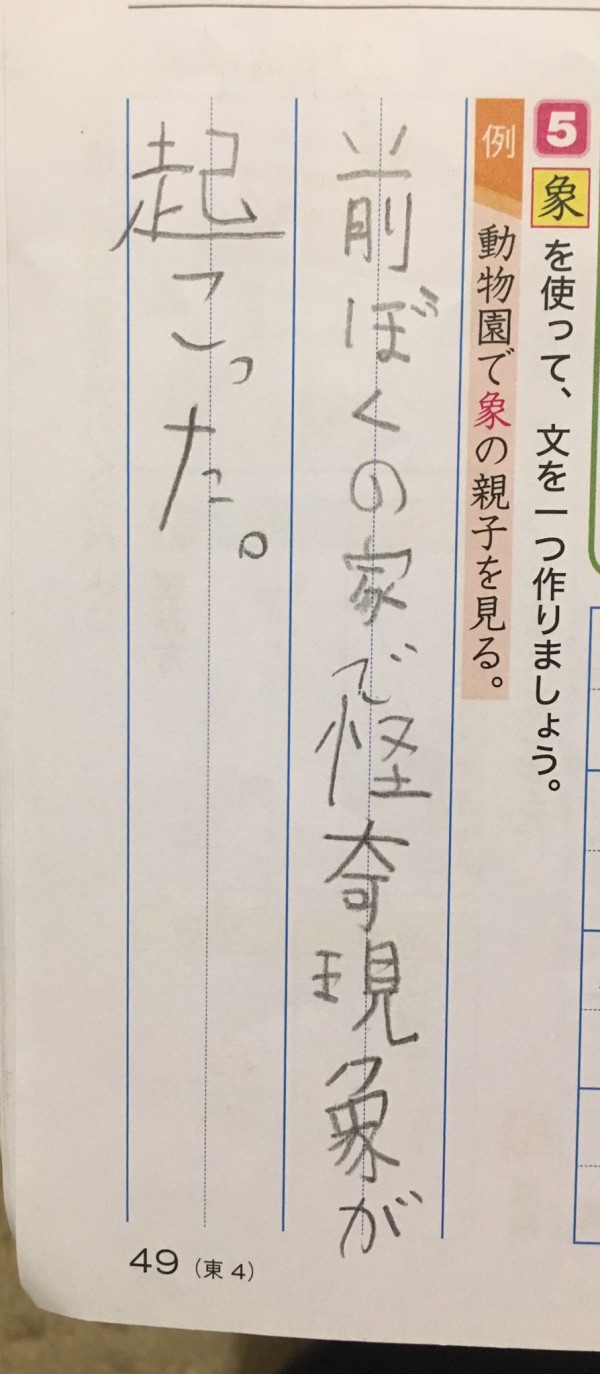 5 象を使って、文を一つ作りましょう。
例 動物園で象の親子を見る。
前ぼくの家で怪奇現象が
起こった。
49(東4)